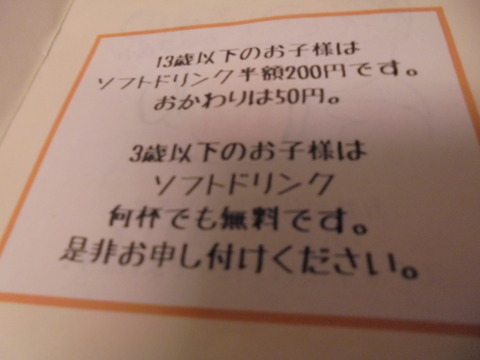 13歳以下のお子様は
ソフトドリンク半額200円です。
おかわりは50円。
3歳以下のお子様は
ソフトドリンク
何杯でも無料です。
是非お申し付けください。